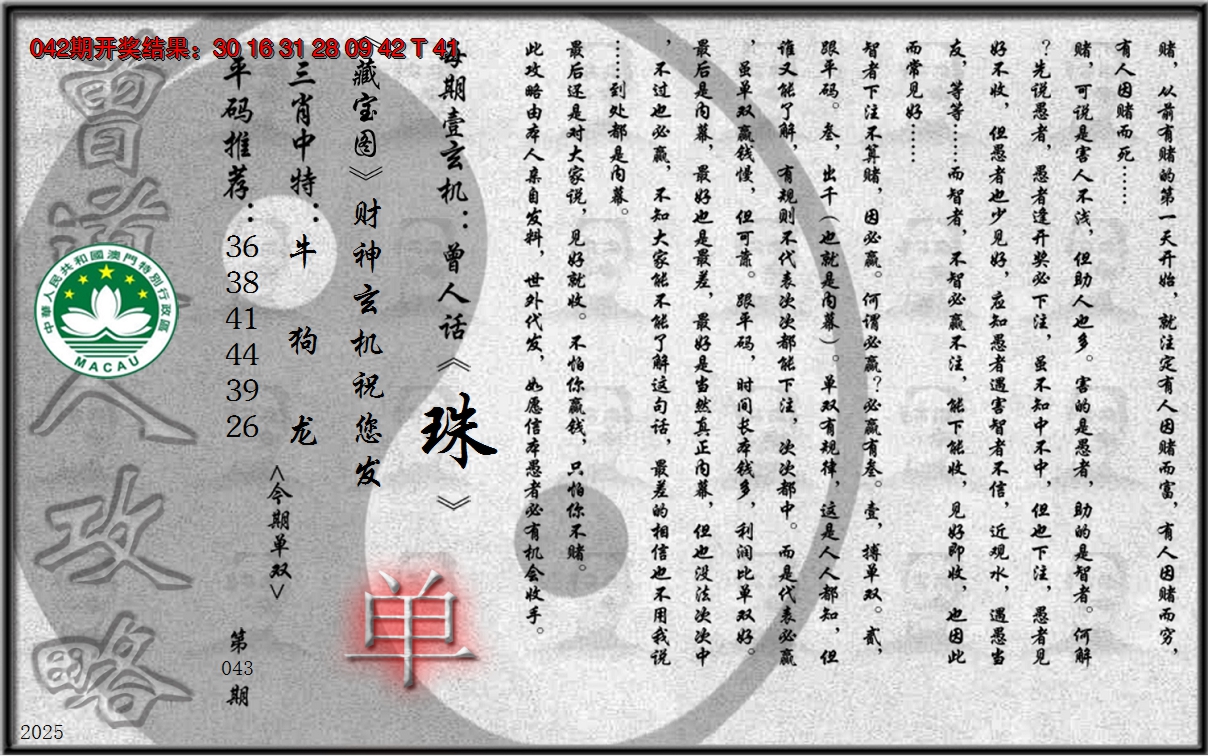 042期开奖结果：30 16 31 28 09 42 T 41
赌，从前有赌的第一天开始，就注定有人因赌而富，有人因赌而穷，
有人因赌而死……
赌，可说是害人不浅，但助人也多。害的是愚者，助的是智者。何解
？先说愚者，愚者逢开奖必下注，虽不知中不中，但也下注，愚者见
好不收，但愚者也少见好，应知愚者遇害智者不信，近观水，遇愚当
友，等等……而智者，不智必赢不注，能下能收，见好即收，也因此
而常见好……
智者下注不算赌，因必赢。何谓必赢？必赢有叁。壹，搏单双。贰，
跟平码。叁，出千（也就是内幕）。单双有规律，这是人人都知，但
谁又能了解，有规则不代表次次都能下注，次次都中。而是代表必赢
，虽单双赢钱慢，但可靠。跟平码，时间长本钱多，利润比单双好。
最后是内幕，最好也是最差，最好是当然真正内幕，但也没法次次中
，不过也必赢，不知大家能不能了解这句话，最差的相信也不用我说
……到处都是内幕。
最后还是对大家说，见好就收。不怕你赢钱，只怕你不赌。
此攻略由本人亲自发料，世外代发，如愿信本愚者必有机会收手。
每期壹玄机：曾人话《珠》
《藏宝图》财神玄机祝您发
单
三肖中特：牛 狗 龙
<今期单双>
平码推荐：
36
38
41
44
39
26
第
043
期
曾道人攻略
中華人民共和國澳門特別行政區
MACAU
2025